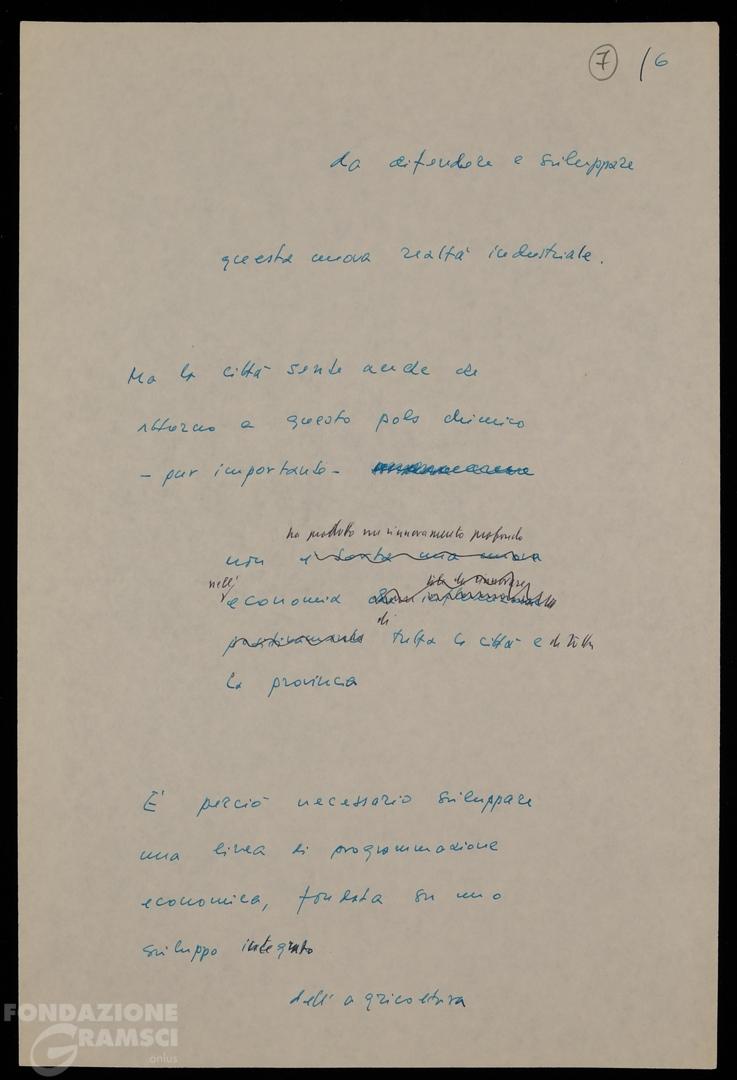 7 /6
da difendere e sviluppare
questa nuova realtà industriale.
Ma la città sente anche che
attorno a questo polo chimico
- pur importante -
ha prodotto un rinnovamento profondo
non è sorta una nuova
nell'
economia
di
tutta la città e di tutta
la provincia
E' perciò necessario sviluppare
una linea di programmazione
economica, fondata su uno
sviluppo integrato
dell'agricoltura
FONDAZIONE
GRAMSCI
onlus